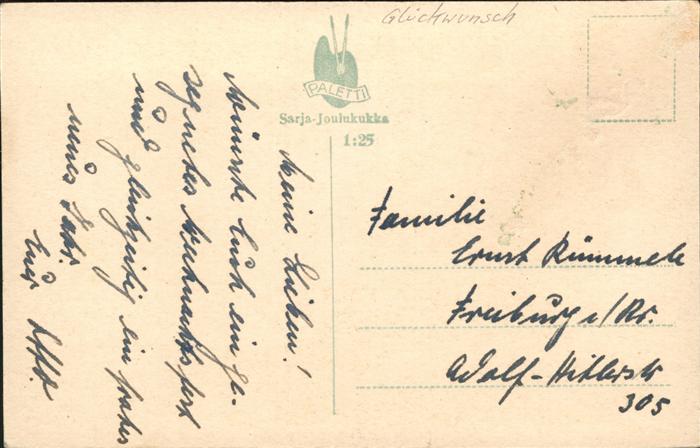 Glückwunsch
PALETTI
Sarja-Joulukukka
1:25
Meine Lieben!
Wünsche Euch ein ge-
segnetes Weihnachtsfest
und gleichzeitig ein frohes
neues Jahr
Euer
Familie
Ernst Rümmele
Freiburg i/Br.
Adolf-Hitlerstr
305